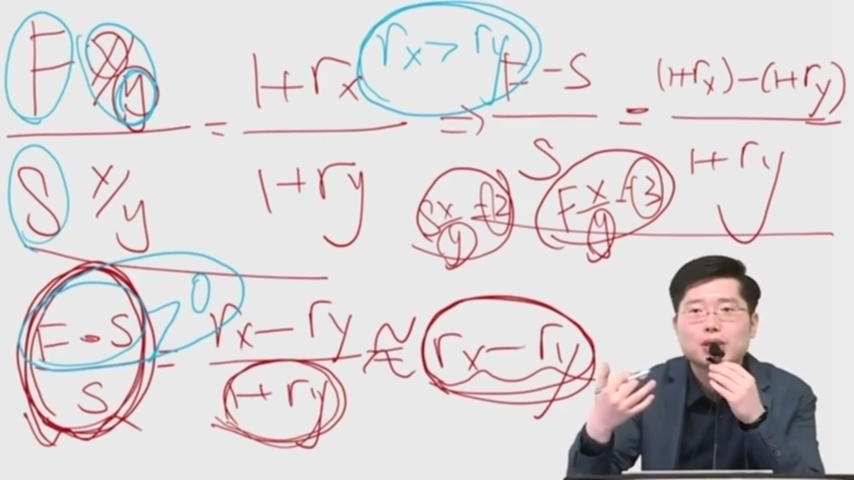 F x/y / S x/y = 1+rx / 1+ry ⇒ F-S / S = (1+rx)-(1+ry) / 1+ry
rx > ry
S x/y = 2
F x/y = 3
F-S / S = rx-ry / 1+ry ≈ rx-ry
> 0